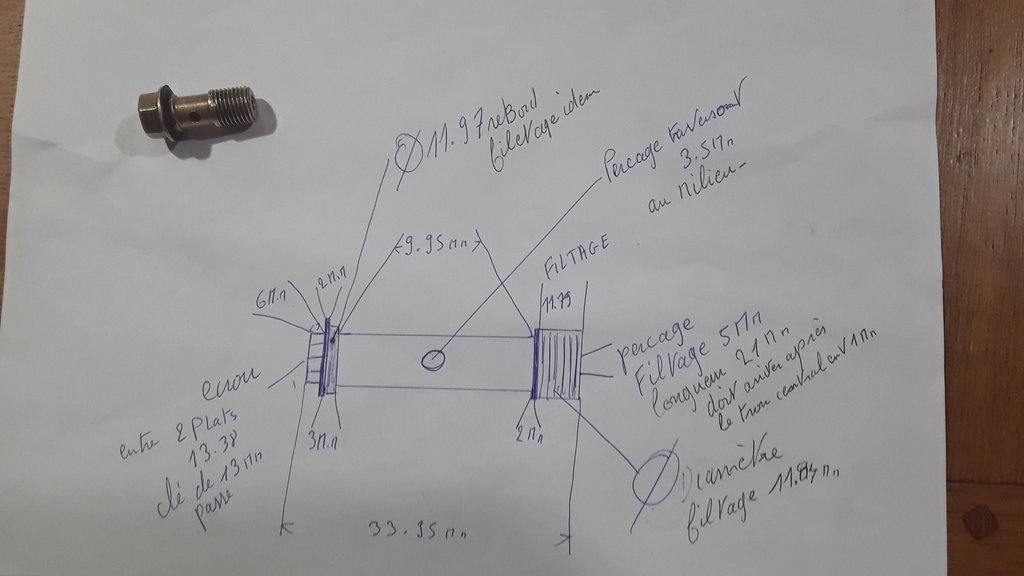 Ø 11.97 rebord
filetage idem
Percage traversant
3.5 mm
au milieu
9.95 mm
FILTAGE
11.79
6 mm
2 mm
percage
Filtage 5 mm
longueur 21 mm
doit arriver après
le trou central env 1 mm
ecrou
entre 2 Plats
13.38
clé de 13 mm
passe
3 mm
2 mm
Ø Diamètre
filtage 11.84 mm
33.35 mm